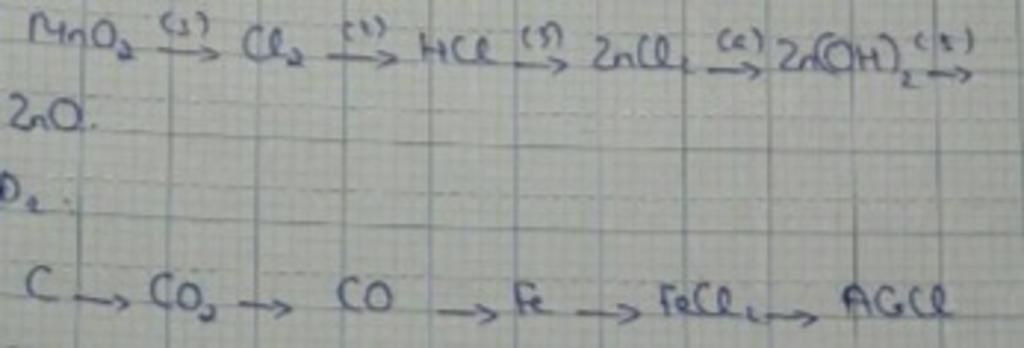 MnO₂ (1)→ Cl₂ (2)→ HCl (3)→ ZnCl₂ (4)→ Zn(OH)₂ (5)→
ZnO.
O₂.
C → CO₂ → CO → Fe → FeCl₂ → AGCl